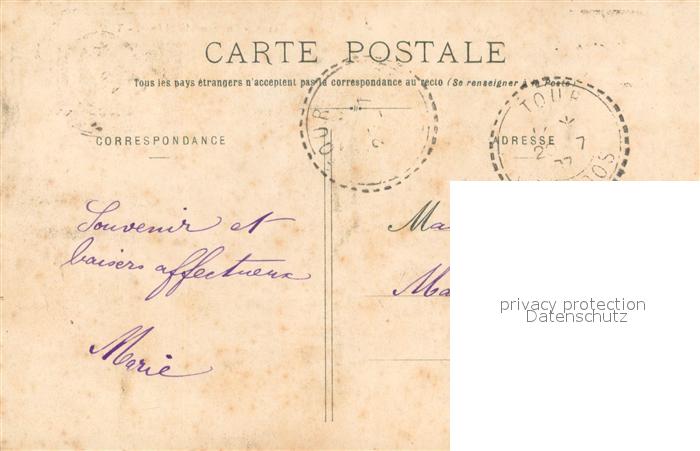 CARTE POSTALE
Tous les pays étrangers n'acceptent pas la correspondance au recto (Se renseigner à la Poste)
CORRESPONDANCE
ADRESSE
TOUR
Souvenir et
baisers affectueux
Marie
Ma
Ma
privacy protection
Datenschutz